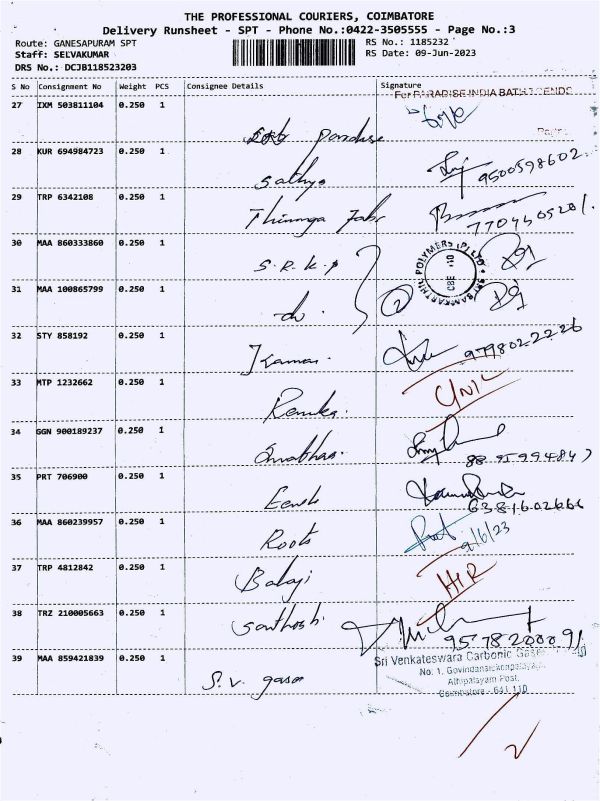 THE PROFESSIONAL COURIERS, COIMBATORE
Delivery Runsheet - SPT - Phone No.:0422-3505555 - Page No.:3
Route: GANESAPURAM SPT RS No.: 1185232
Staff: SELVAKUMAR RS Date: 09-Jun-2023
DRS No.: DCJB118523203
S No Consignment No Weight PCS Consignee Details Signature
For PARADISE INDIA BATH TRENDS
27 IXM 503811104 0.250 1
Paradise
28 KUR 694984723 0.250 1
Sathya 9500598602
29 TRP 6342108 0.250 1
30 MAA 860333860 0.250 1
S.R.K.P
POLYMERS (P) LTD
CBE
31 MAA 100865799 0.250 1
do. 2
32 STY 858192 0.250 1
Kumar. 9798022226
33 MTP 1232662 0.250 1
Renuka.
34 GGN 900189237 0.250 1
35 PRT 706900 0.250 1
6381602666
36 MAA 860239957 0.250 1
Roots 9/6/23
37 TRP 4812842 0.250 1
Balaji
38 TRZ 210005663 0.250 1
Santhosh 9578220091
39 MAA 859421839 0.250 1
S.V. gases
Sri Venkateswara Carbonic Gases
No. 1, Govindanaickenpalayam,
Athipalayam Post,
Coimbatore - 641 110